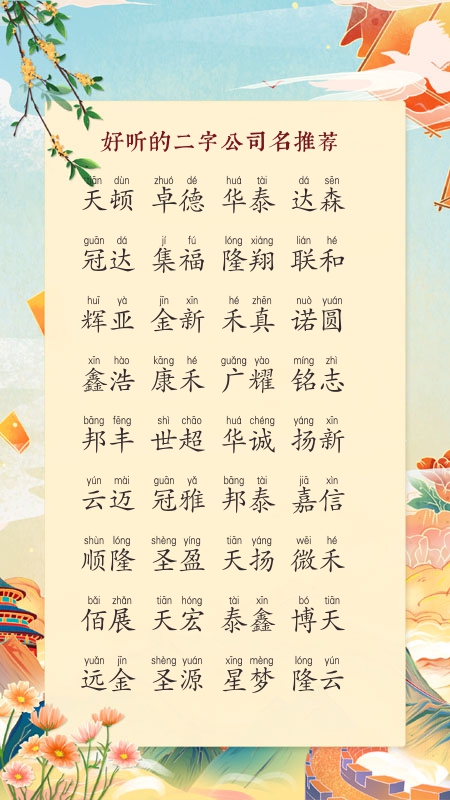 好听的二字公司名推荐
tiān dùn zhuó dé huá tài dá sēn
天顿 卓德 华泰 达森
guān dá jí fú lóng xiáng lián hé
冠达 集福 隆翔 联和
huī yà jīn xīn hé zhēn nuò yuán
辉亚 金新 禾真 诺圆
xīn hào kāng hé guǎng yào míng zhì
鑫浩 康禾 广耀 铭志
bāng fēng shì chāo huá chéng yáng xīn
邦丰 世超 华诚 扬新
yún mài guān yǎ bāng tài jiā xìn
云迈 冠雅 邦泰 嘉信
shùn lóng shèng yíng tiān yáng wēi hé
顺隆 圣盈 天扬 微禾
bǎi zhǎn tiān hóng tài xīn bó tiān
佰展 天宏 泰鑫 博天
yuǎn jīn shèng yuán xīng mèng lóng yún
远金 圣源 星梦 隆云